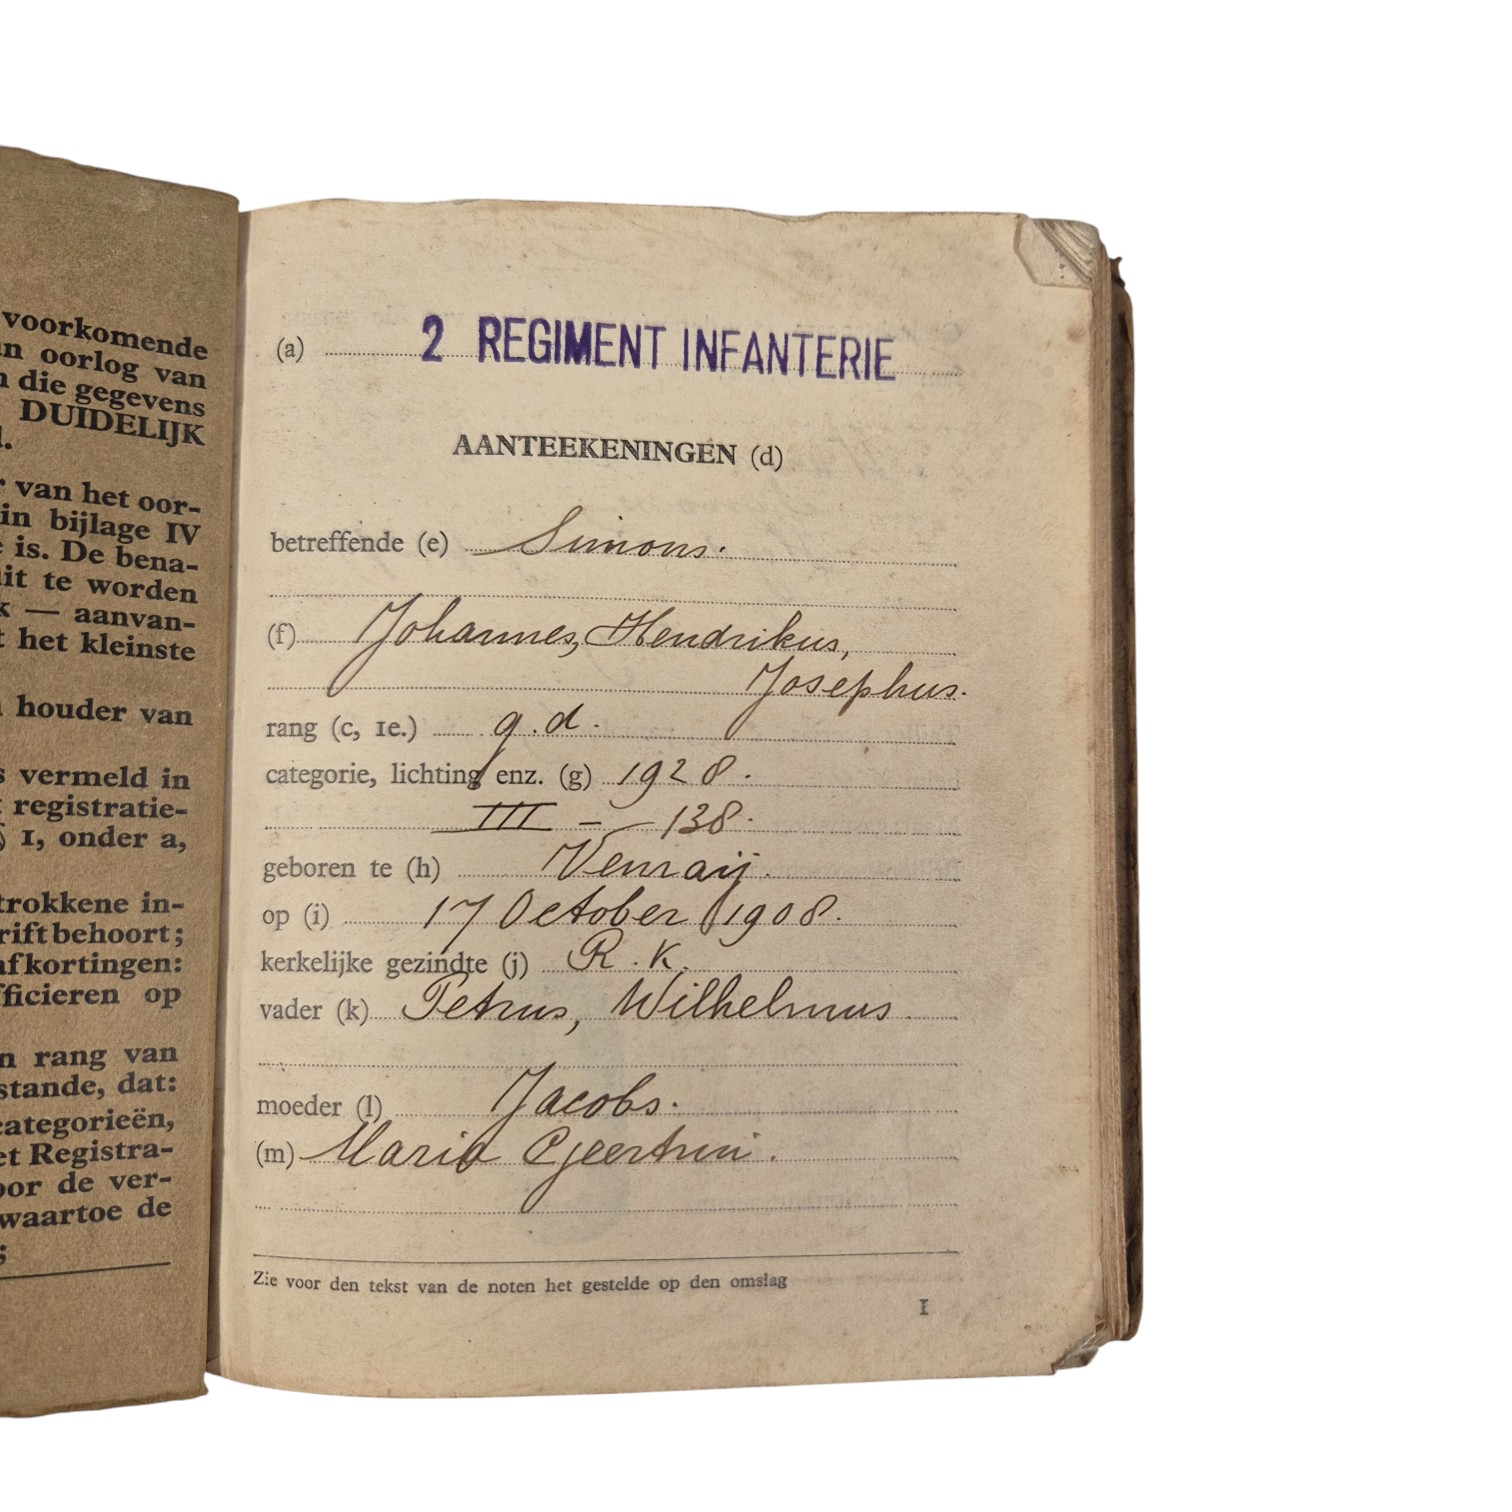 voorkomende
oorlog van
die gegevens
DUIDELIJK
van het oor-
in bijlage IV
is. De bena-
te worden
— aanvan-
het kleinste
houder van
vermeld in
registratie-
1, onder a,
in-
behoort;
afkortingen:
op
rang van
dat:
categorieën,
Registra-
de ver-
waartoe de
;
(a) 2 REGIMENT INFANTERIE
AANTEEKENINGEN (d)
betreffende (e) Simons.
(f) Johannes, Hendrikus,
Josephus.
rang (c, 1e.) g.d.
categorie, lichting enz. (g) 1928.
III – 138.
geboren te (h) Venraij.
op (i) 17 October 1908.
kerkelijke gezindte (j) R.K.
vader (k) Petrus, Wilhelmus.
moeder (l) Jacobs.
(m) Maria
Zie voor den tekst van de noten het gestelde op den omslag
1